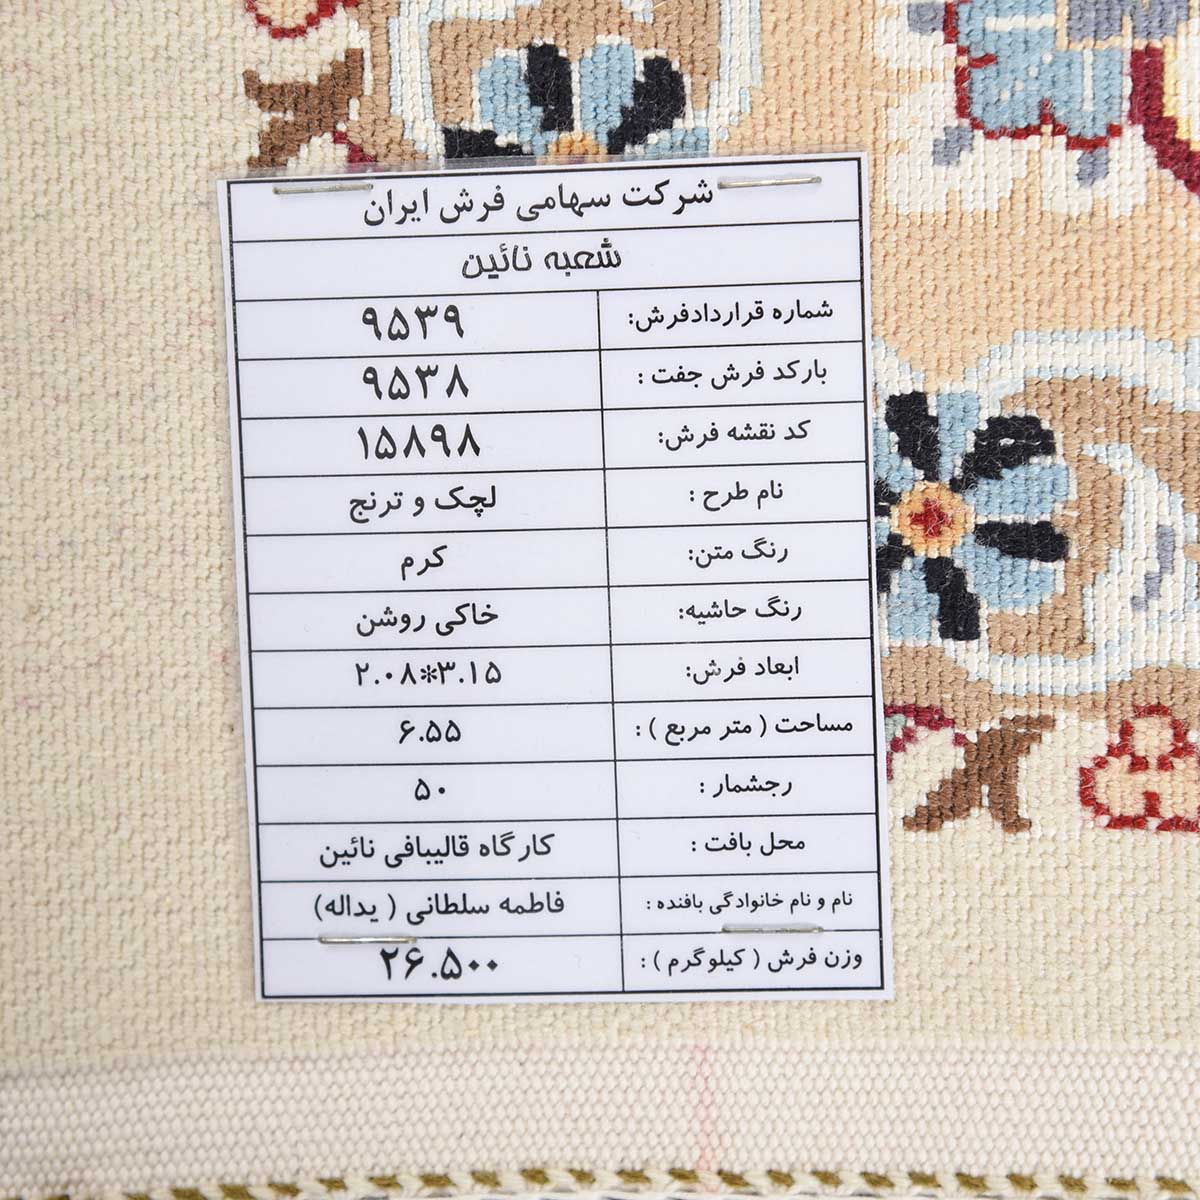 شرکت سهامی فرش ایران
شعبه نائین
شماره قراردادفرش: ۹۵۳۹
بارکد فرش جفت : ۹۵۳۸
کد نقشه فرش: ۱۵۸۹۸
نام طرح : لچک و ترنج
رنگ متن: کرم
رنگ حاشیه: خاکی روشن
ابعاد فرش: ۲.۰۸*۳.۱۵
مساحت ( متر مربع ) : ۶.۵۵
رجشمار : ۵۰
محل بافت : کارگاه قالیبافی نائین
نام و نام خانوادگی بافنده : فاطمه سلطانی ( یداله)
وزن فرش ( کیلوگرم ) : ۲۶.۵۰۰